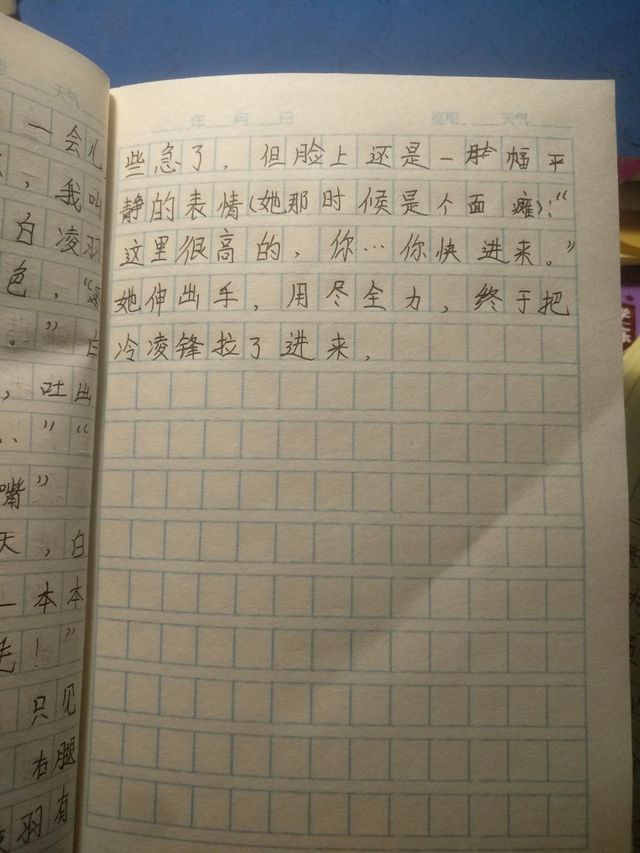 天气
一会儿
，我叫
白凌羽
色，“
。”白
，吐出
”“
嘴”
天，白
一本本
毛！”
只见
右腿
羽有
年 月 日 星期 天气
些急了，但脸上还是一脸幅平
静的表情（她那时候是个面瘫）：“
这里很高的，你…你快进来。”
她伸出手，用尽全力，终于把
冷凌锋拉了进来．